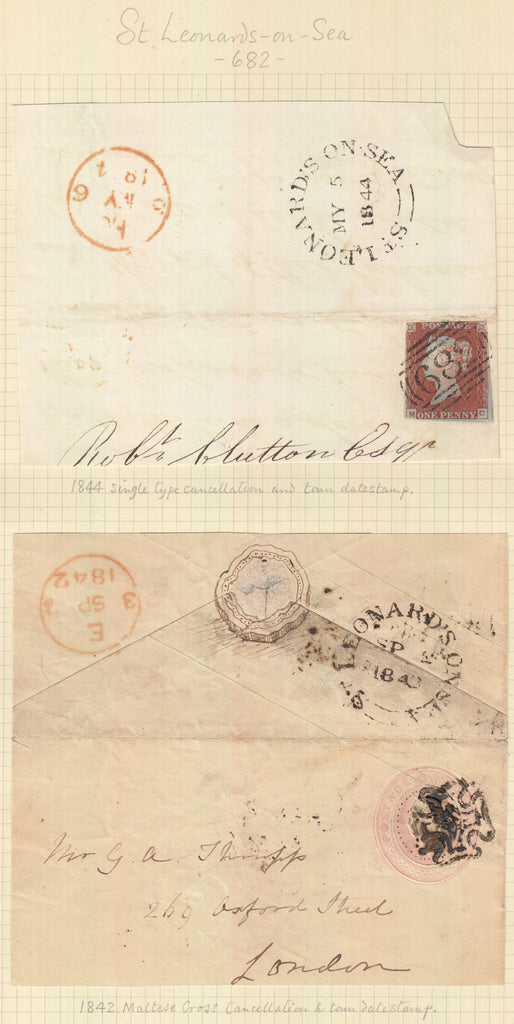 St Leonards-on-Sea
-682-
6 6
MY
184
ST LEONARD'S ON-SEA
MY 5
1844
POSTAGE
68
M ONE PENNY C
Robt Clutton Esqr
1844 single type cancellation and town datestamp.
3 3
E
SP
1842
ST LEONARD'S ON
SP 2
184
POSTAGE
Mr G A Thrupp
269 Oxford Street
London
1842 Maltese Cross Cancellation & town datestamp.